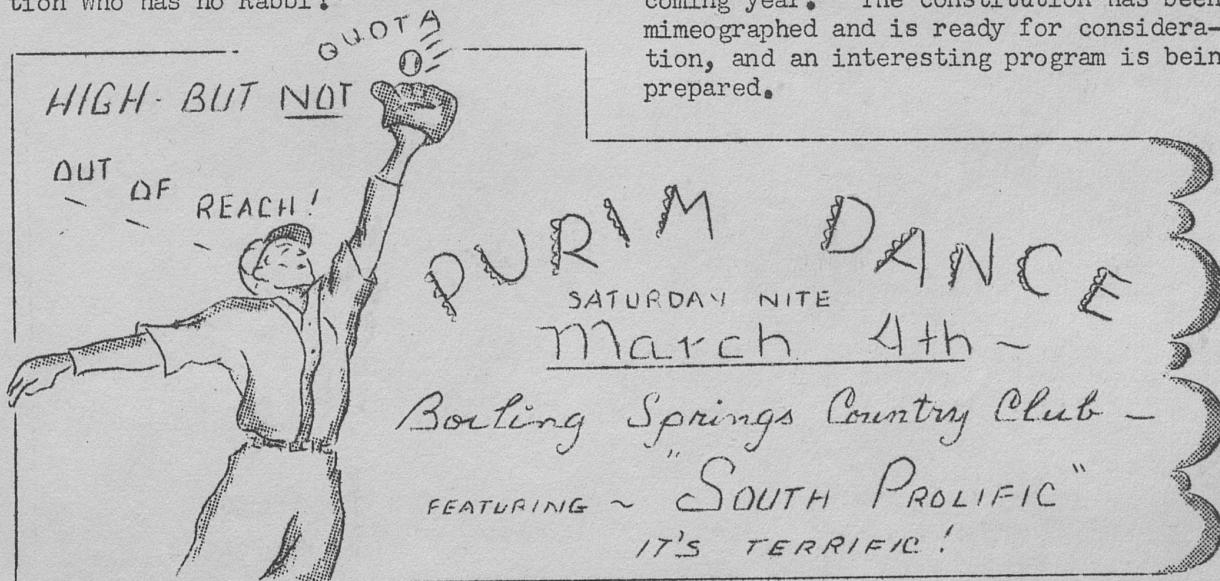 tion who has no Rabbi!
coming year. The constitution has been
mimeographed and is ready for considera-
tion, and an interesting program is bein
prepared.
QUOTA
HIGH - BUT NOT
OUT OF REACH!
PURIM DANCE
SATURDAY NITE
March 4th ~
Boiling Springs Country Club -
FEATURING ~ "SOUTH PROLIFIC"
IT'S TERRIFIC!